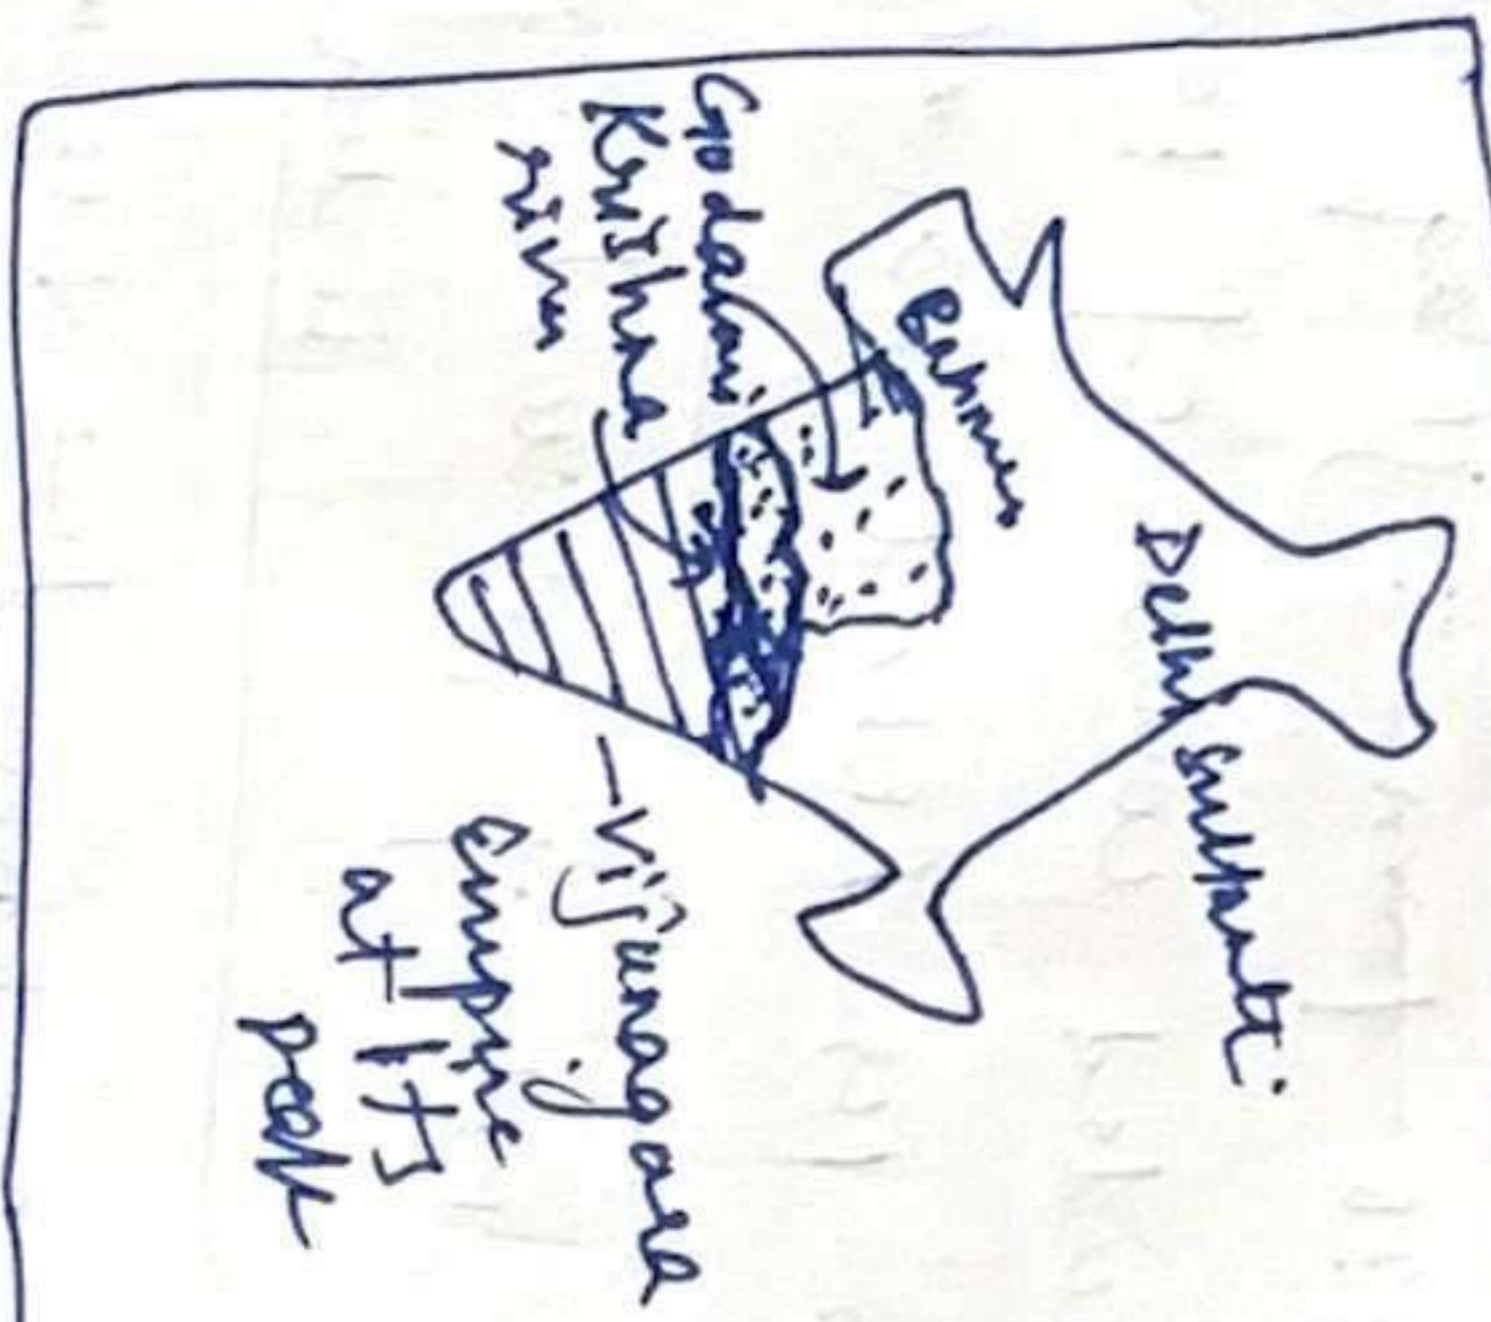 Delhi Sultanate
Bahmes
Godavari
Krishna
river
- Vijyanagara
empire
at its
peak